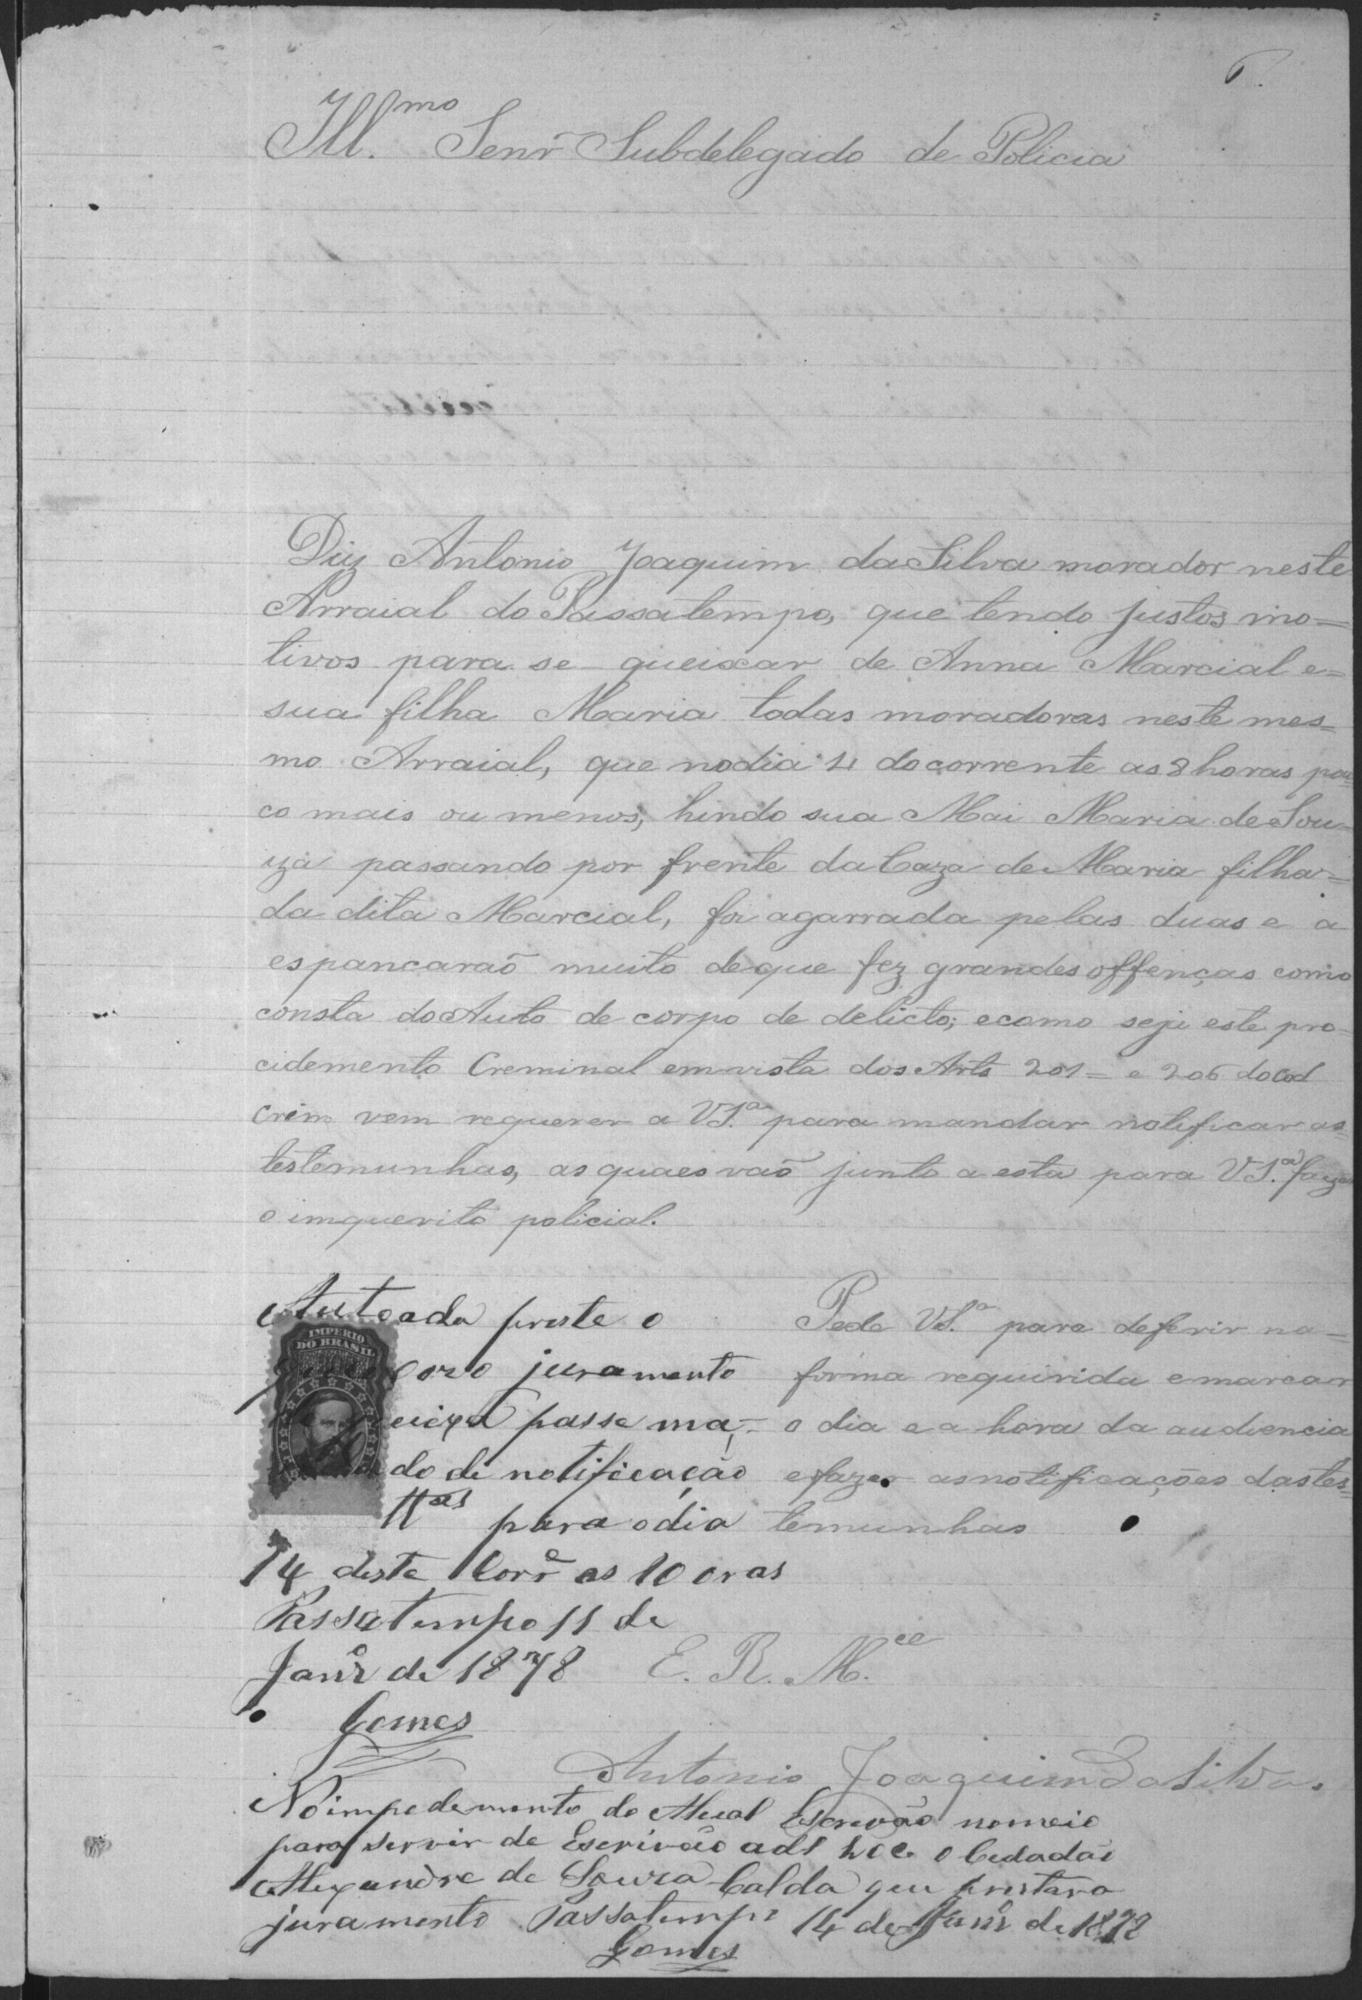 6.
Ill.mo Senr Subdelegado de Policia
Diz Antonio Joaquim da Silva morador neste
Arraial do Passatempo, que tendo justos mo=
tivos para se queixar de Anna Marcial e=
sua filha Maria todas moradoras neste mes=
mo Arraial, que no dia 4 do corrente as 8 horas pou
co mais ou menos, hindo sua Mai Maria de Sou=
za passando por frente da Caza de Maria filha=
da dita Marcial, foi agarrada pelas duas e a
espancaraõ muito de que fez grandes offenças como
consta do Auto de corpo de delicto; e como seje este pro
cidemento Creminal em vista dos Arts 201= e 206 do Cod
Crim vem requerer a V.S.a para mandar notificar as
testemunhas, as quaes vaõ junto a esta para V.S.a fazer
o imquerito policial.
Pede V.S.a para deferir na=
forma requirida e marcar
o dia e a hora da audiencia
e fazer as notificações das tes=
temunhas
E. R. M.ce
Antonio Joaquim da Silva.
Autoada preste o
juramento
passe ma,=
do de notificação
ttas para o dia
14 deste Corre as 10 oras
Passatempo 11 de
Janro de 1878
Gomes
IMPERIO
DO BRASIL
No impedemento do Atual Escrevão nomeio
para servir de Escrivão adt hoc o Cidadão
Alexandre de Souza Calda que prestara
juramento Passatempo 14 de Janro de 1878
Gomes